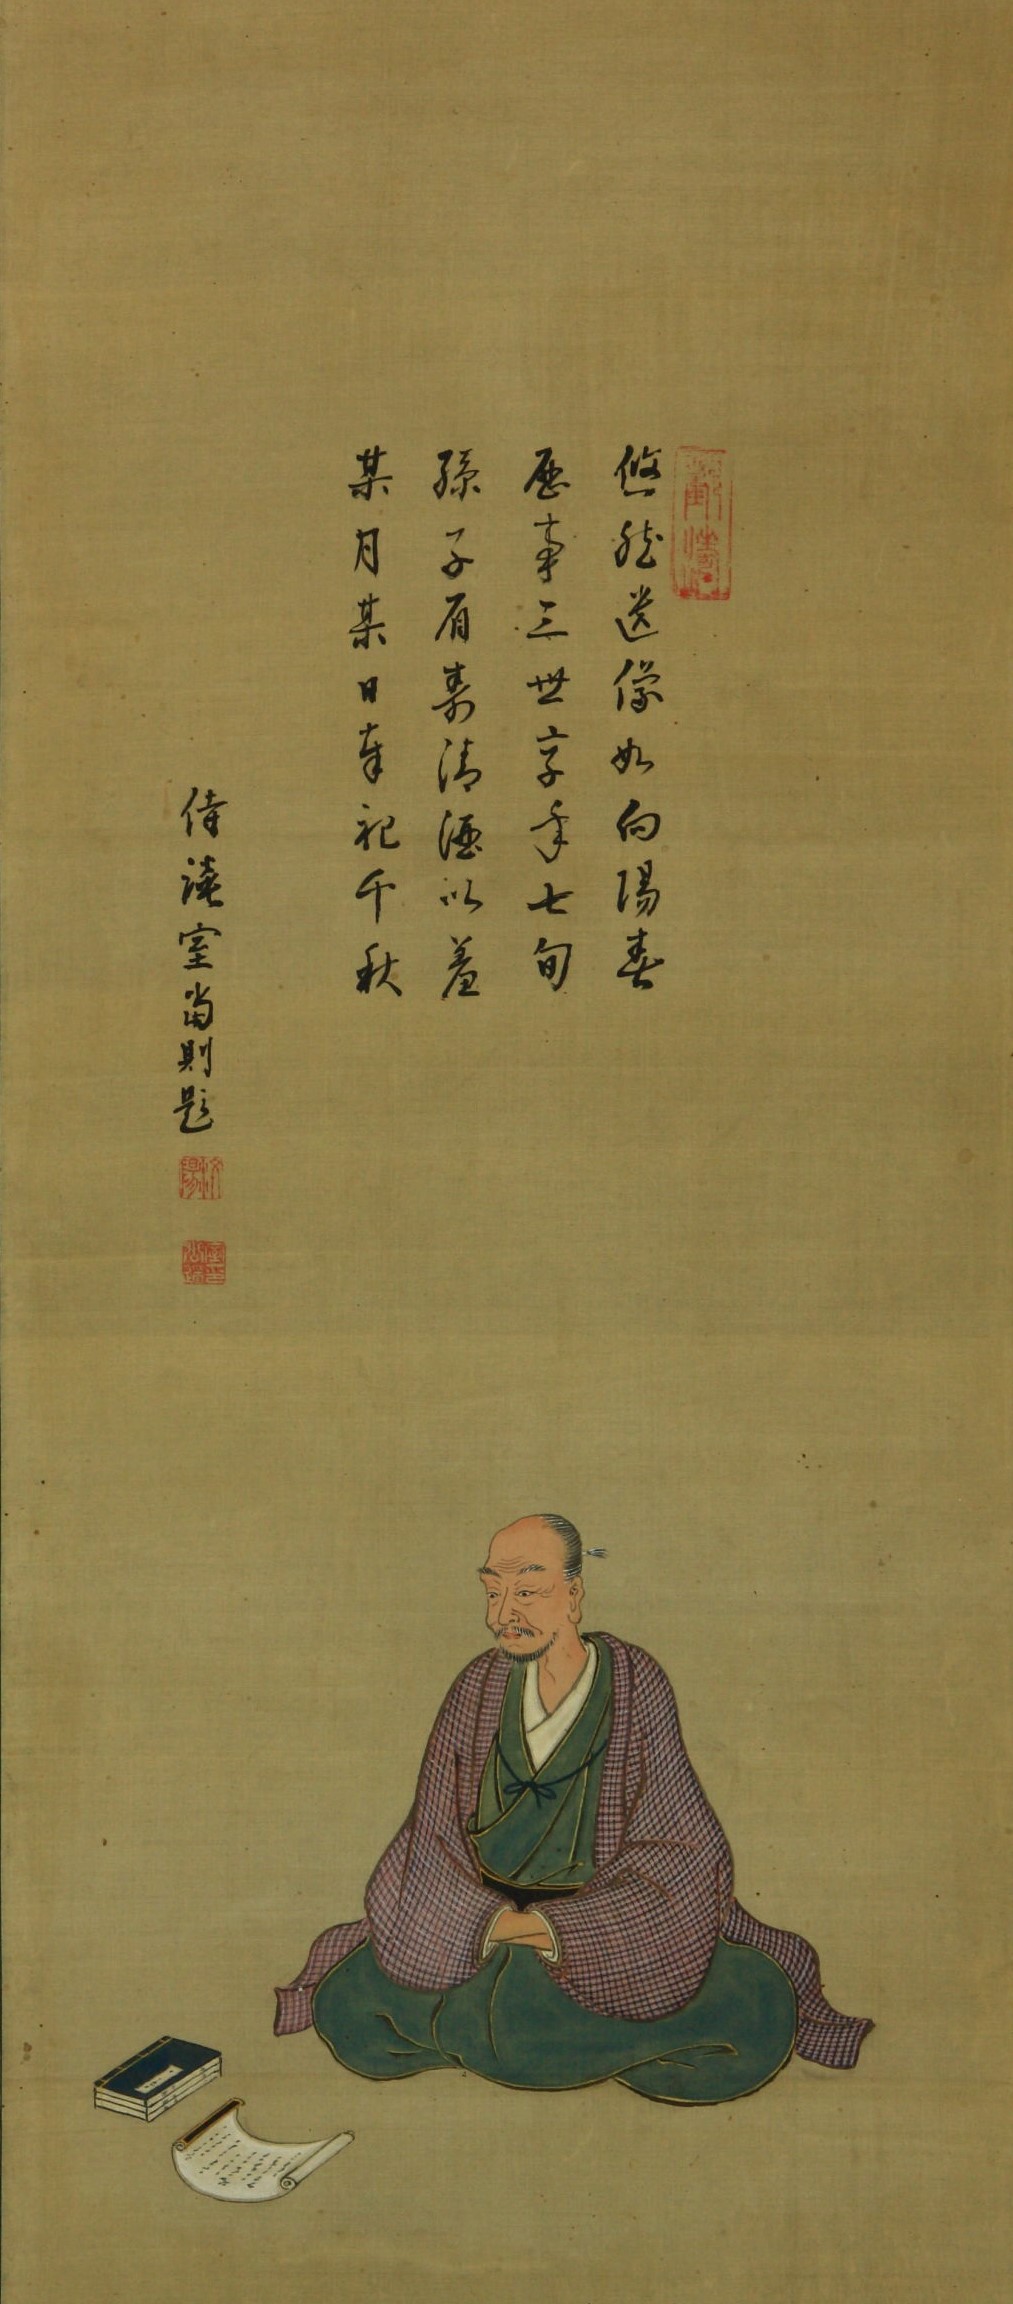 悠然遺像如向陽春
歴事三世享年七旬
孫子眉寿清酒以羞
某月某日奉祀千秋
侍読室尚則題